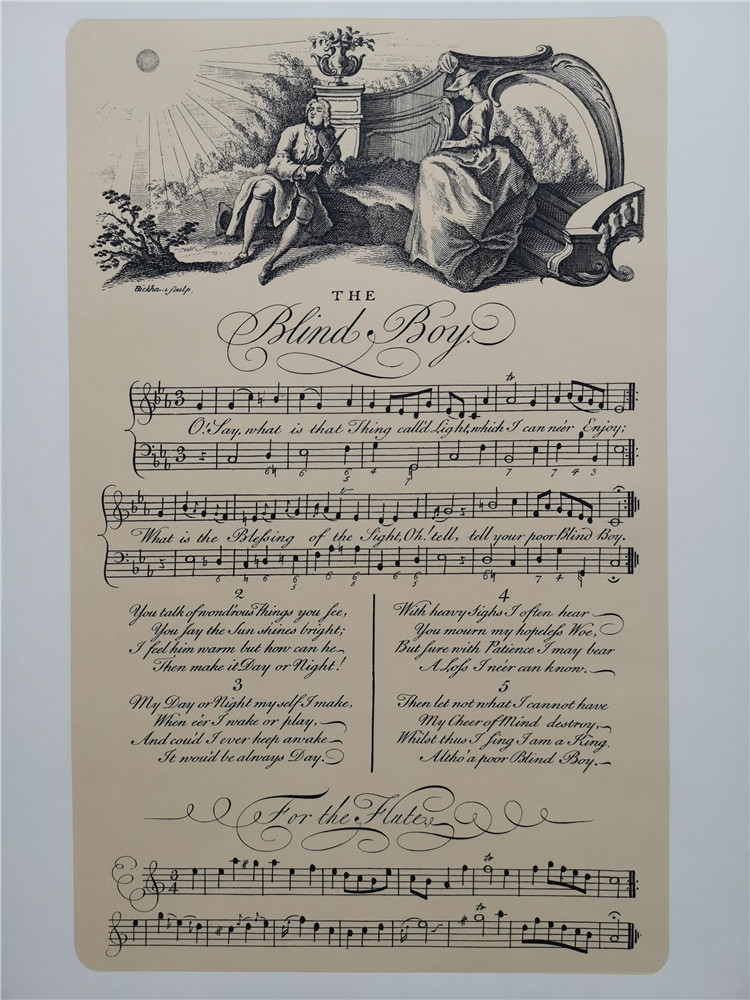 Bickham sculp.
THE
Blind Boy.
O! Say, what is that Thing call'd Light, which I can ne'er Enjoy;
What is the Blessing of the Sight, Oh! tell, tell your poor Blind Boy.
2
You talk of wond'rous Things you see,
You say the Sun shines bright;
I feel him warm but how can he
Then make it Day or Night!
3
My Day or Night my self I make,
When e'er I wake or play,
And cou'd I ever keep awake
It wou'd be always Day.
4
With heavy Sighs I often hear
You mourn my hopeless Woe,
But sure with Patience I may bear
A Loss I ne'er can know.
5
Then let not what I cannot have
My Cheer of Mind destroy,
Whilst thus I sing I am a King,
Altho' a poor Blind Boy.
For the Flute